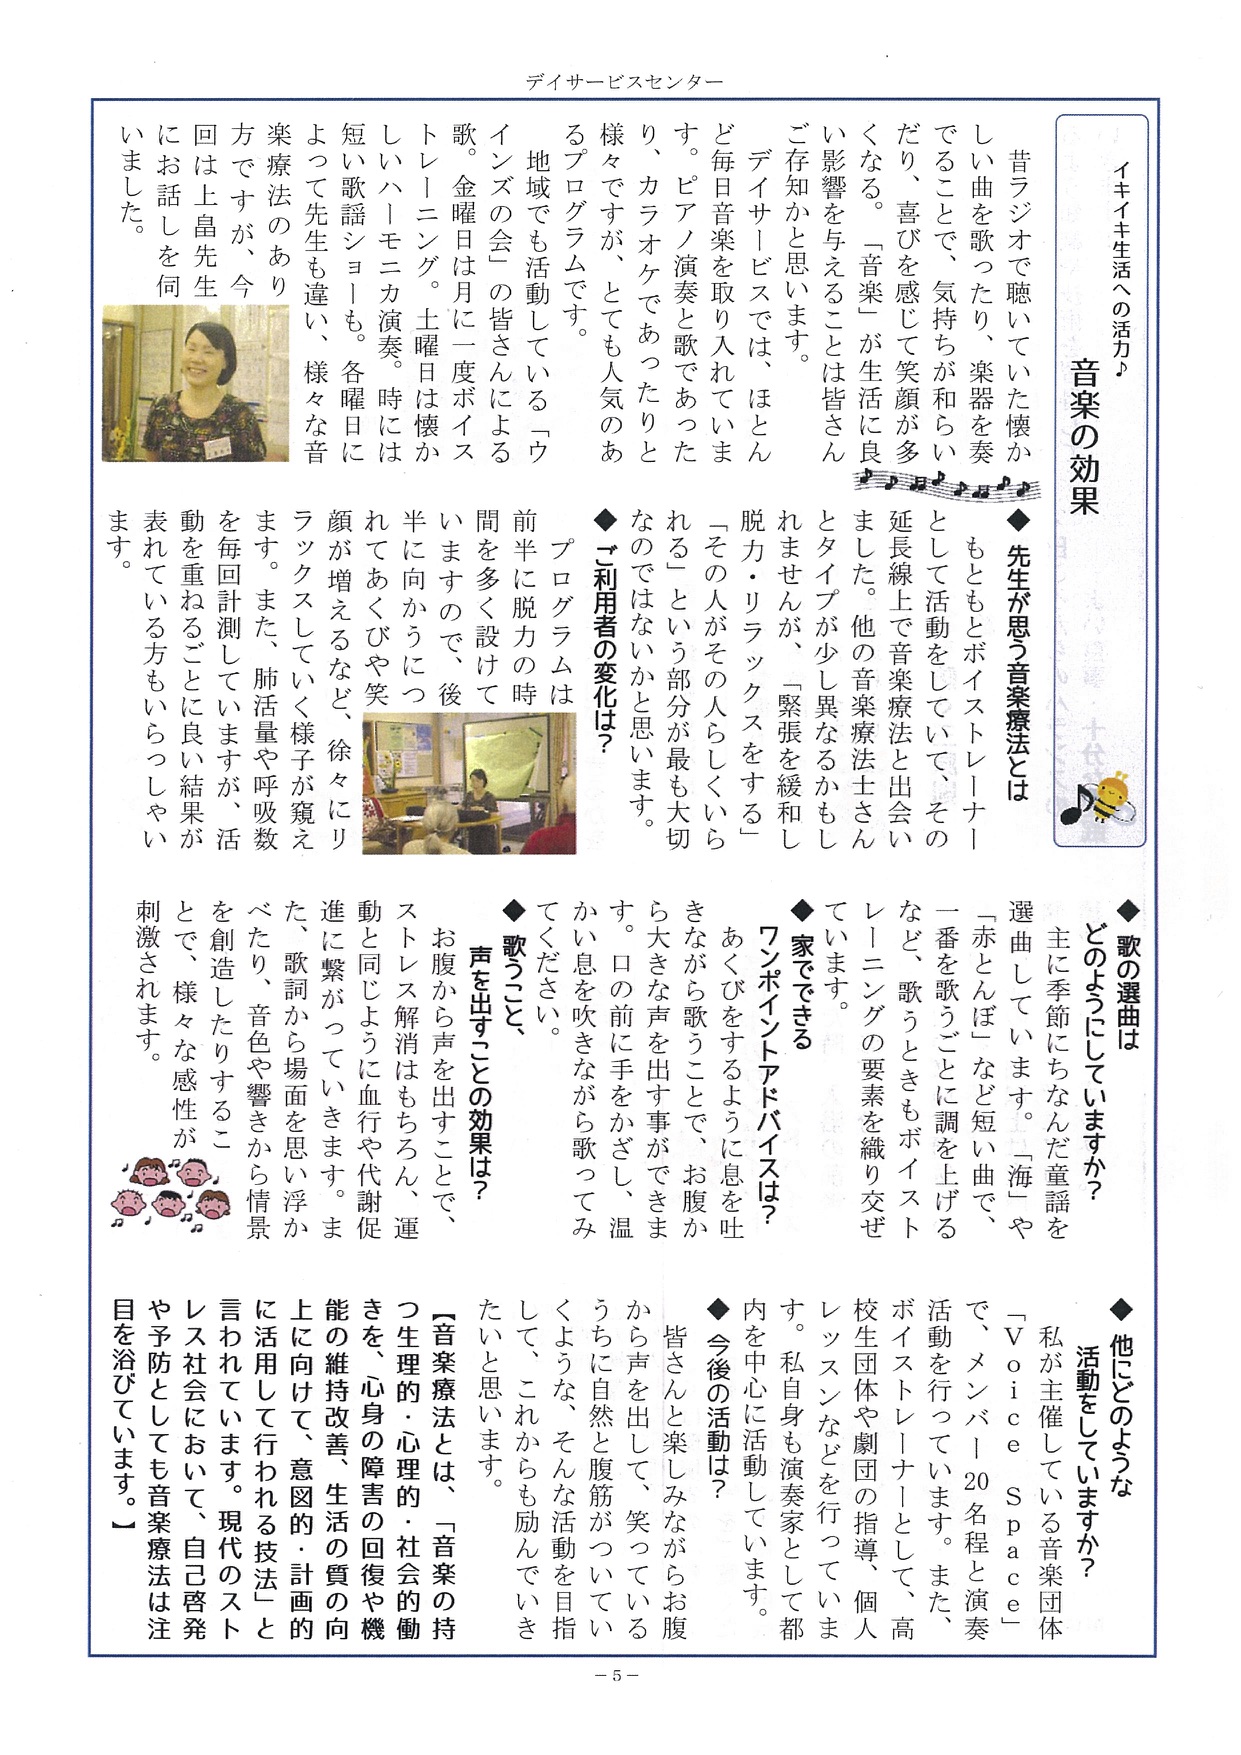 デイサービスセンター
イキイキ生活への活力♪
音楽の効果
昔ラジオで聴いていた懐か
しい曲を歌ったり、楽器を奏
でることで、気持ちが和らい
だり、喜びを感じて笑顔が多
くなる。「音楽」が生活に良
い影響を与えることは皆さん
ご存知かと思います。
デイサービスでは、ほとん
ど毎日音楽を取り入れていま
す。ピアノ演奏と歌であった
り、カラオケであったりと
様々ですが、とても人気のあ
るプログラムです。
地域でも活動している「ウ
インズの会」の皆さんによる
歌。金曜日は月に一度ボイス
トレーニング。土曜日は懐か
しいハーモニカ演奏。時には
短い歌謡ショーも。各曜日に
よって先生も違い、様々な音
楽療法のあり
方ですが、今
回は上畠先生
にお話しを伺
いました。
◆ 先生が思う音楽療法とは
もともとボイストレーナー
として活動をしていて、その
延長線上で音楽療法と出会い
ました。他の音楽療法士さん
とタイプが少し異なるかもし
れませんが、「緊張を緩和し
脱力・リラックスをする」
「その人がその人らしくいら
れる」という部分が最も大切
なのではないかと思います。
◆ ご利用者の変化は？
プログラムは
前半に脱力の時
間を多く設けて
いますので、後
半に向かうにつ
れてあくびや笑
顔が増えるなど、徐々にリ
ラックスしていく様子が窺え
ます。また、肺活量や呼吸数
を毎回計測していますが、活
動を重ねるごとに良い結果が
表れている方もいらっしゃい
ます。
◆ 歌の選曲は
どのようにしていますか？
主に季節にちなんだ童謡を
選曲しています。「海」や
「赤とんぼ」など短い曲で、
一番を歌うごとに調を上げる
など、歌うときもボイスト
レーニングの要素を織り交ぜ
ています。
◆ 家でできる
ワンポイントアドバイスは？
あくびをするように息を吐
きながら歌うことで、お腹か
ら大きな声を出す事ができま
す。口の前に手をかざし、温
かい息を吹きながら歌ってみ
てください。
◆ 歌うこと、
声を出すことの効果は？
お腹から声を出すことで、
ストレス解消はもちろん、運
動と同じように血行や代謝促
進に繋がっていきます。ま
た、歌詞から場面を思い浮か
べたり、音色や響きから情景
を創造したりするこ
とで、様々な感性が
刺激されます。
◆ 他にどのような
活動をしていますか？
私が主催している音楽団体
「Ｖｏｉｃｅ　Ｓｐａｃｅ」
で、メンバー20名程と演奏
活動を行っています。また、
ボイストレーナーとして、高
校生団体や劇団の指導、個人
レッスンなどを行っていま
す。私自身も演奏家として都
内を中心に活動しています。
◆ 今後の活動は？
皆さんと楽しみながらお腹
から声を出して、笑っている
うちに自然と腹筋がついてい
くような、そんな活動を目指
して、これからも励んでいき
たいと思います。
【音楽療法とは、「音楽の持
つ生理的・心理的・社会的働
きを、心身の障害の回復や機
能の維持改善、生活の質の向
上に向けて、意図的・計画的
に活用して行われる技法」と
言われています。現代のスト
レス社会において、自己啓発
や予防としても音楽療法は注
目を浴びています。】
－5－